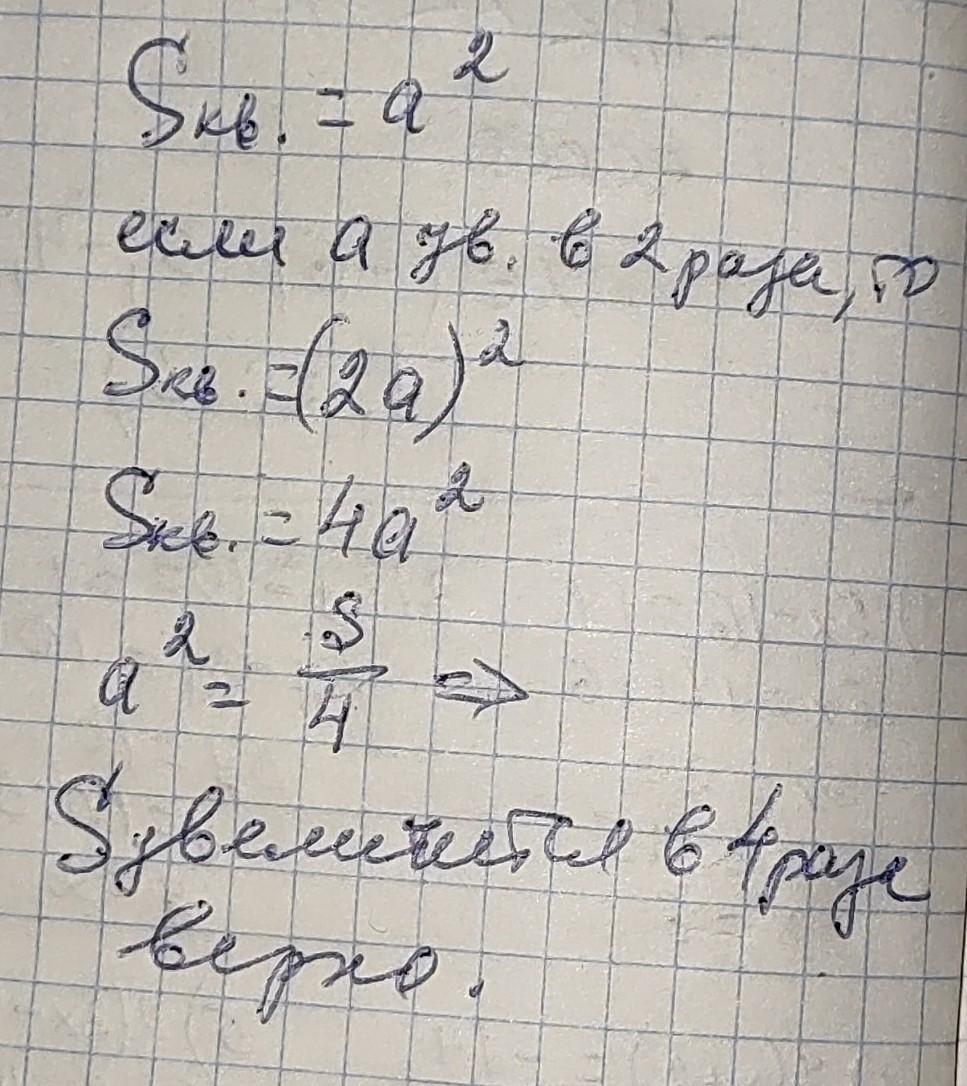 Sкв. = a²
если a ув. в 2 раза, то
Sкв. = (2a)²
Sкв. = 4a²
a² = S/4 ⇒
S увеличится в 4 раза
верно.